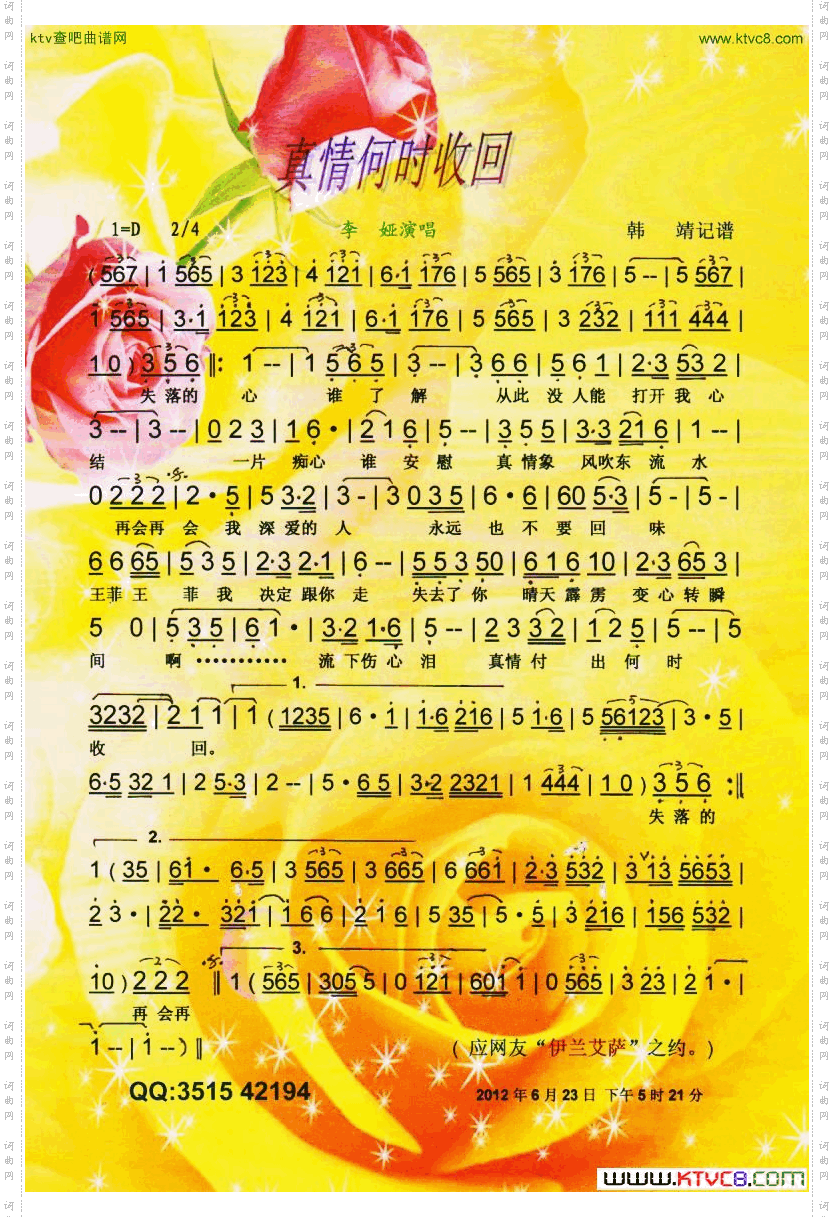 ktv查吧曲谱网 www.ktvc8.com
真情何时收回
1=D 2/4 李 娅演唱 韩 靖记谱
( 567 | 1 565 | 3 123 | 4 121 | 6·1 176 | 5 565 | 3 176 | 5 -- | 5 567 |
1 565 | 3·1 123 | 4 121 | 6·1 176 | 5 565 | 3 232 | 111 444 |
10 ) 3 5 6 ‖: 1 -- | 1 5 6 5 | 3 -- | 3 6 6 | 5 6 1 | 2·3 53 2 |
失 落 的 心 谁 了 解 从此 没 人能 打开 我 心
3 -- | 3 -- | 0 2 3 | 1 6 · | 2 1 6 | 5 -- | 3 5 5 | 3·3 21 6 | 1 -- |
结 一片 痴心 谁 安 慰 真 情象 风吹东 流 水
0 2 2 2 | 2 · 5 | 5 3·2 | 3 - | 3 0 3 5 | 6 · 6 | 60 5·3 | 5 - | 5 - |
再会再 会 我 深 爱的 人 永远 也 不 要 回 味
6 6 65 | 5 3 5 | 2·3 2·1 | 6 -- | 5 5 3 50 | 6 1 6 10 | 2·3 65 3 |
王菲 王 菲 我 决定 跟你 走 失去了 你 晴天 霹 雳 变 心 转 瞬
5 0 | 5 3 5 | 6 1 · | 3·2 1·6 | 5 -- | 2 3 3 2 | 1 2 5 | 5 -- | 5
间 啊 ············ 流 下伤 心 泪 真情 付 出 何 时
1.
3232 | 2 1 1 | 1 ( 1235 | 6 · 1 | 1·6 216 | 5 1·6 | 5 56123 | 3 · 5 |
收 回。
6·5 32 1 | 2 5·3 | 2 -- | 5 · 6 5 | 3·2 2321 | 1 444 | 1 0 ) 3 5 6 :‖
失 落 的
2.
1 ( 35 | 61· 6·5 | 3 565 | 3 665 | 6 661 | 2·3 532 | 3 13 5653 |
2 3 · | 22· 321 | 1 6 6 | 2 1 6 | 5 35 | 5 · 5 | 3 216 | 156 532 |
3.
10 ) 2 2 2 ‖ 1 ( 565 | 305 5 | 0 121 | 601 1 | 0 565 | 3 23 | 2 1 · |
再 会再
1 -- | 1 -- ) ‖ ( 应网友“伊兰艾萨”之约。)
QQ:3515 42194 2012 年 6 月 23 日 下午 5 时 21 分
www.KTVC8.com